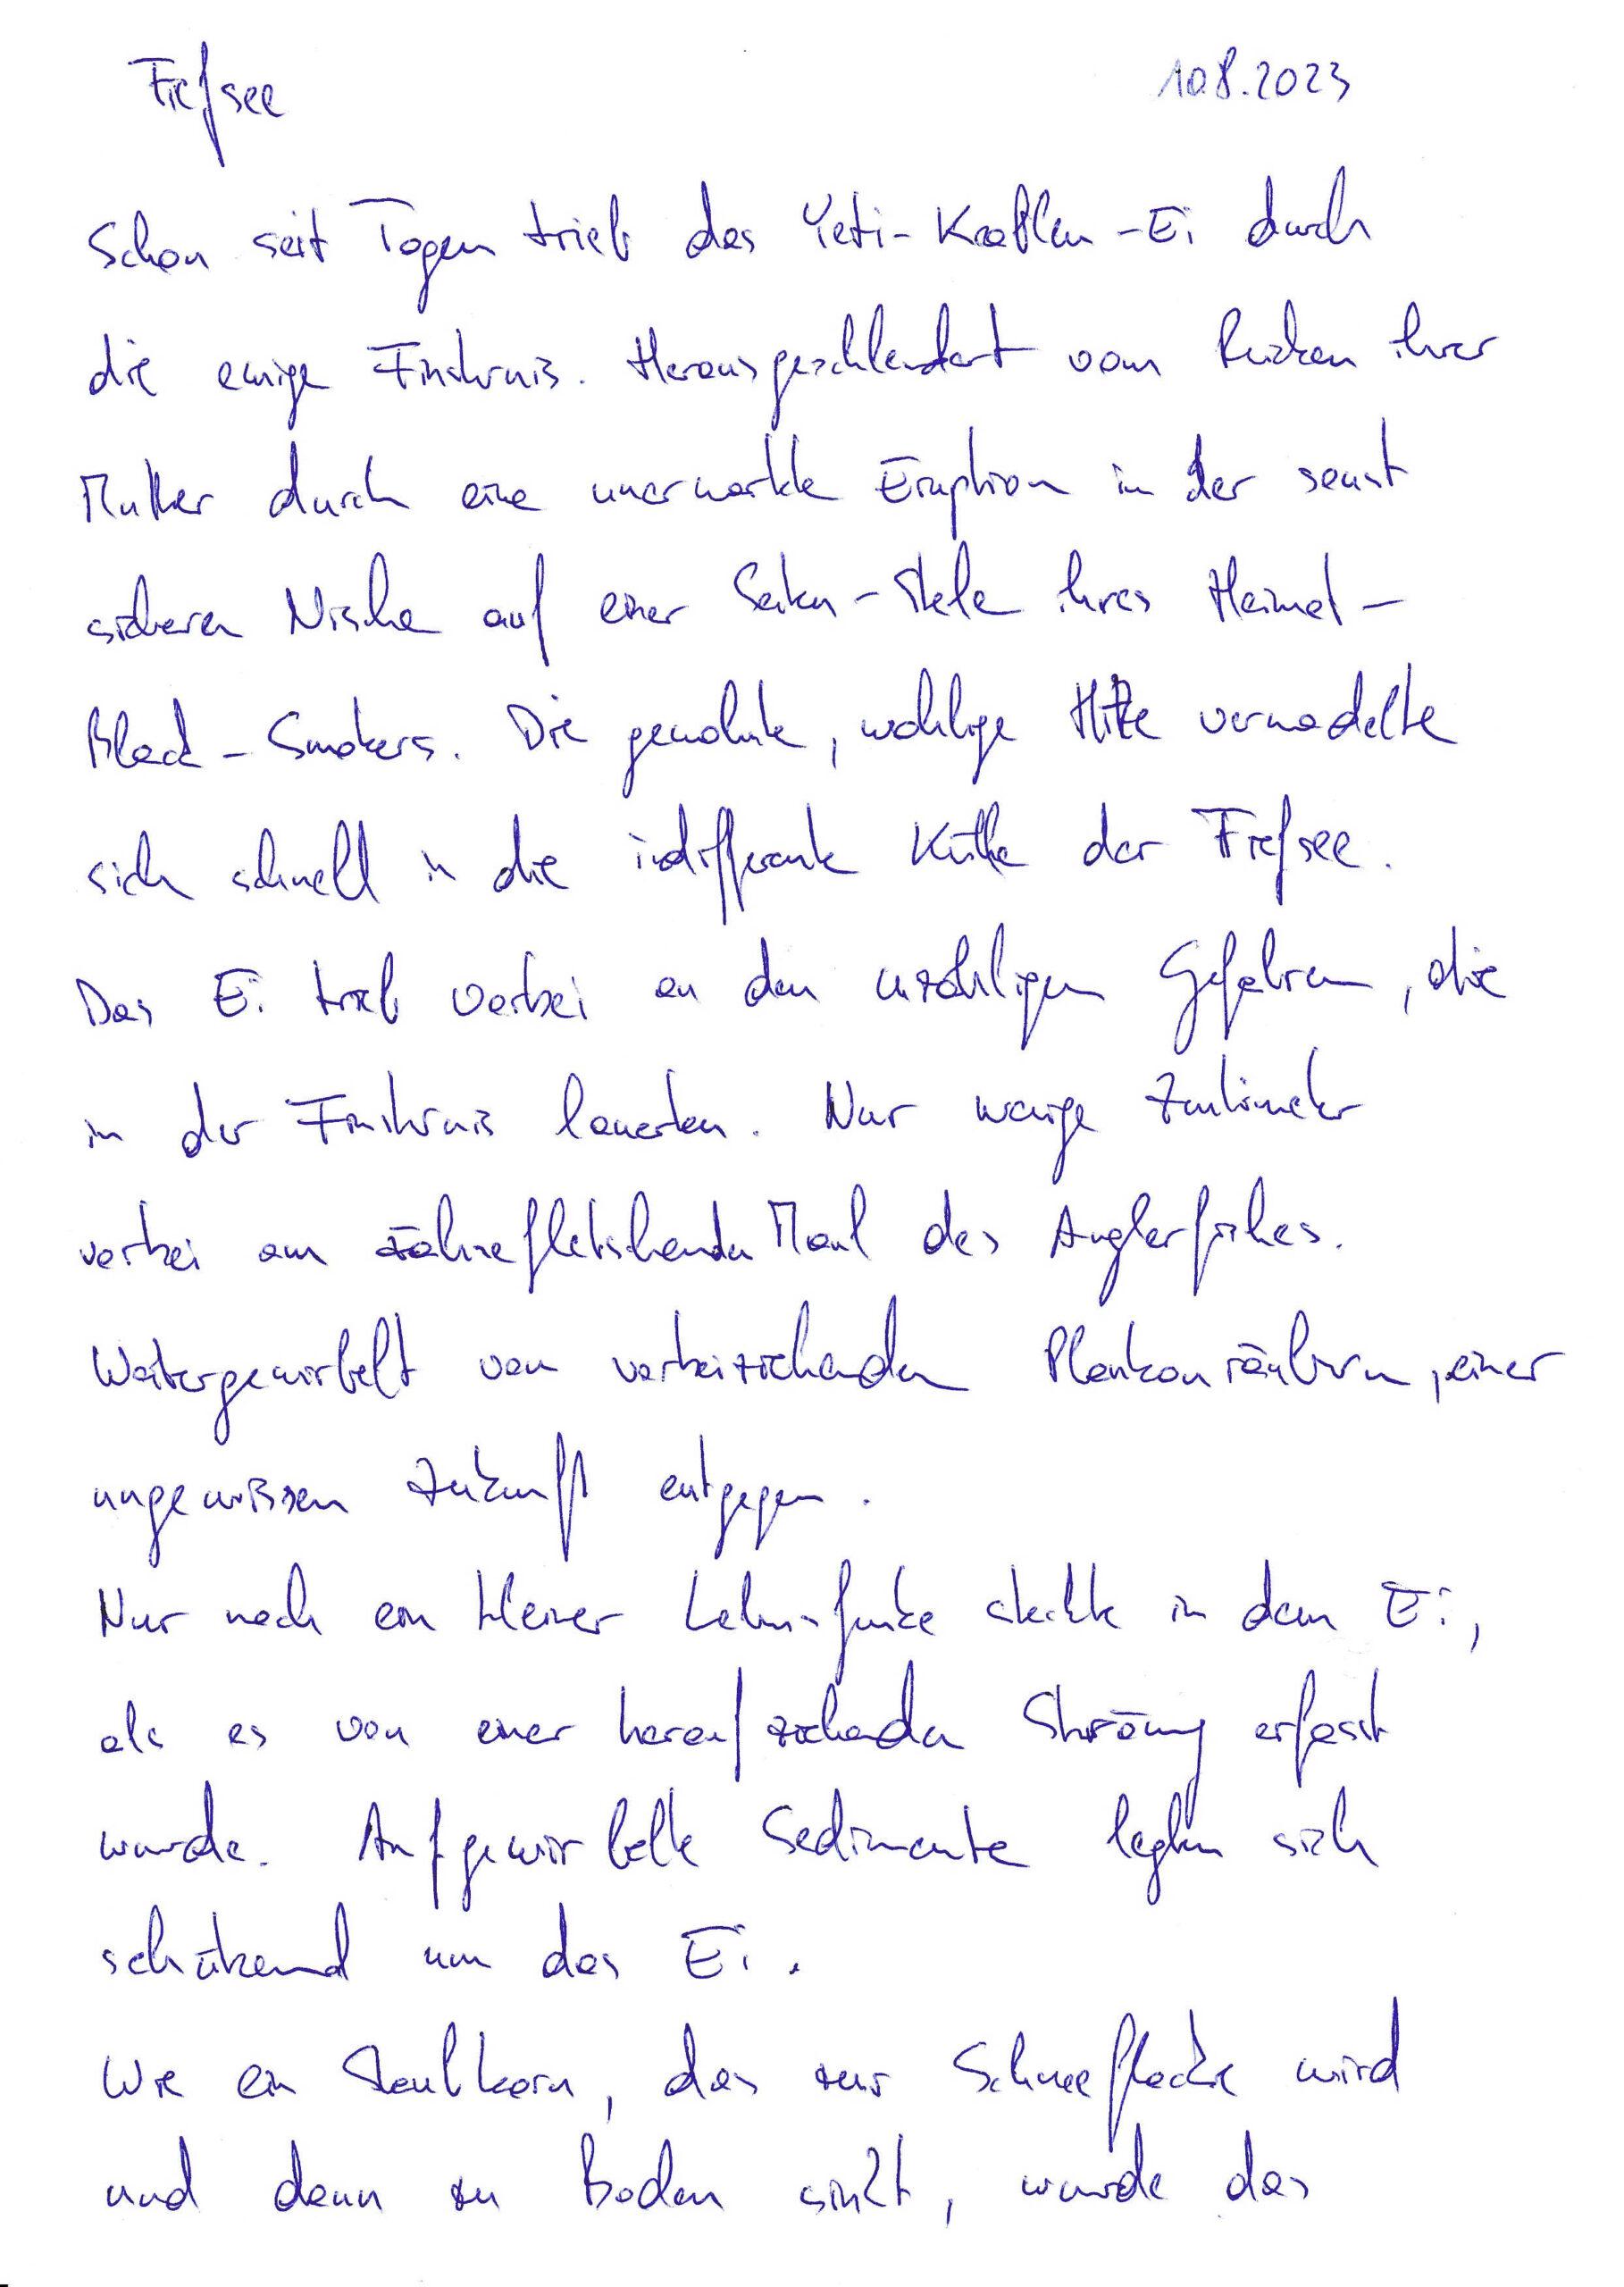 Tiefsee 10.8.2023
Schon seit Tagen trieb das Yeti-Krabben-Ei durch
die ewige Finsternis. Herausgeschleudert vom Rücken ihrer
Mutter durch eine unerwartete Eruption in der sonst
sicheren Nische auf einer Seiten-Stele ihres Heimat-
Black-Smokers. Die gewohnte, wohlige Hitze verwandelte
sich schnell in die indifferente Kälte der Tiefsee.
Das Ei trieb vorbei an den unzähligen Gefahren, die
in der Finsternis lauerten. Nur wenige Zentimeter
vorbei am zähnefletschenden Maul des Anglerfisches.
Weitergewirbelt von vorbeiziehenden Planktonräubern, einer
ungewissen Zukunft entgegen.
Nur noch ein kleiner Lebensfunke steckte in dem Ei,
als es von einer heraufziehenden Strömung erfasst
wurde. Aufgewirbelte Sedimente legten sich
schützend um das Ei.
Wie ein Staubkorn, das zur Schneeflocke wird
und dann zu Boden sinkt, wurde das